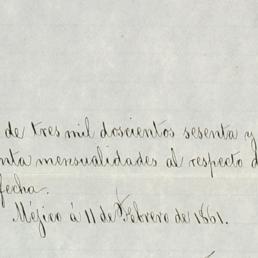 de tres mil doscientos sesenta y
nta mensualidades al respecto d
fecha.
Méjico á 11 de Febrero de 1861.